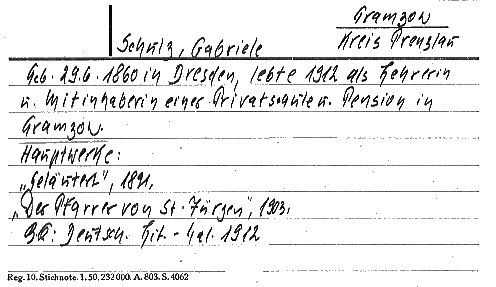 Gramzow
Schulz, Gabriele Kreis Prenzlau
Geb. 29.6. 1860 in Dresden, lebte 1912 als Lehrerin
u. Mitinhaberin einer Privatschule u. Pension in
Gramzow.
Hauptwerke:
„Geläutert", 1891.
„Der Pfarrer von St. Jürgen", 1903.
Deutsch. Lit.-Kal. 1912
Reg. 10. Stichnote. 1. 50, 232000. A. 803. S. 4062